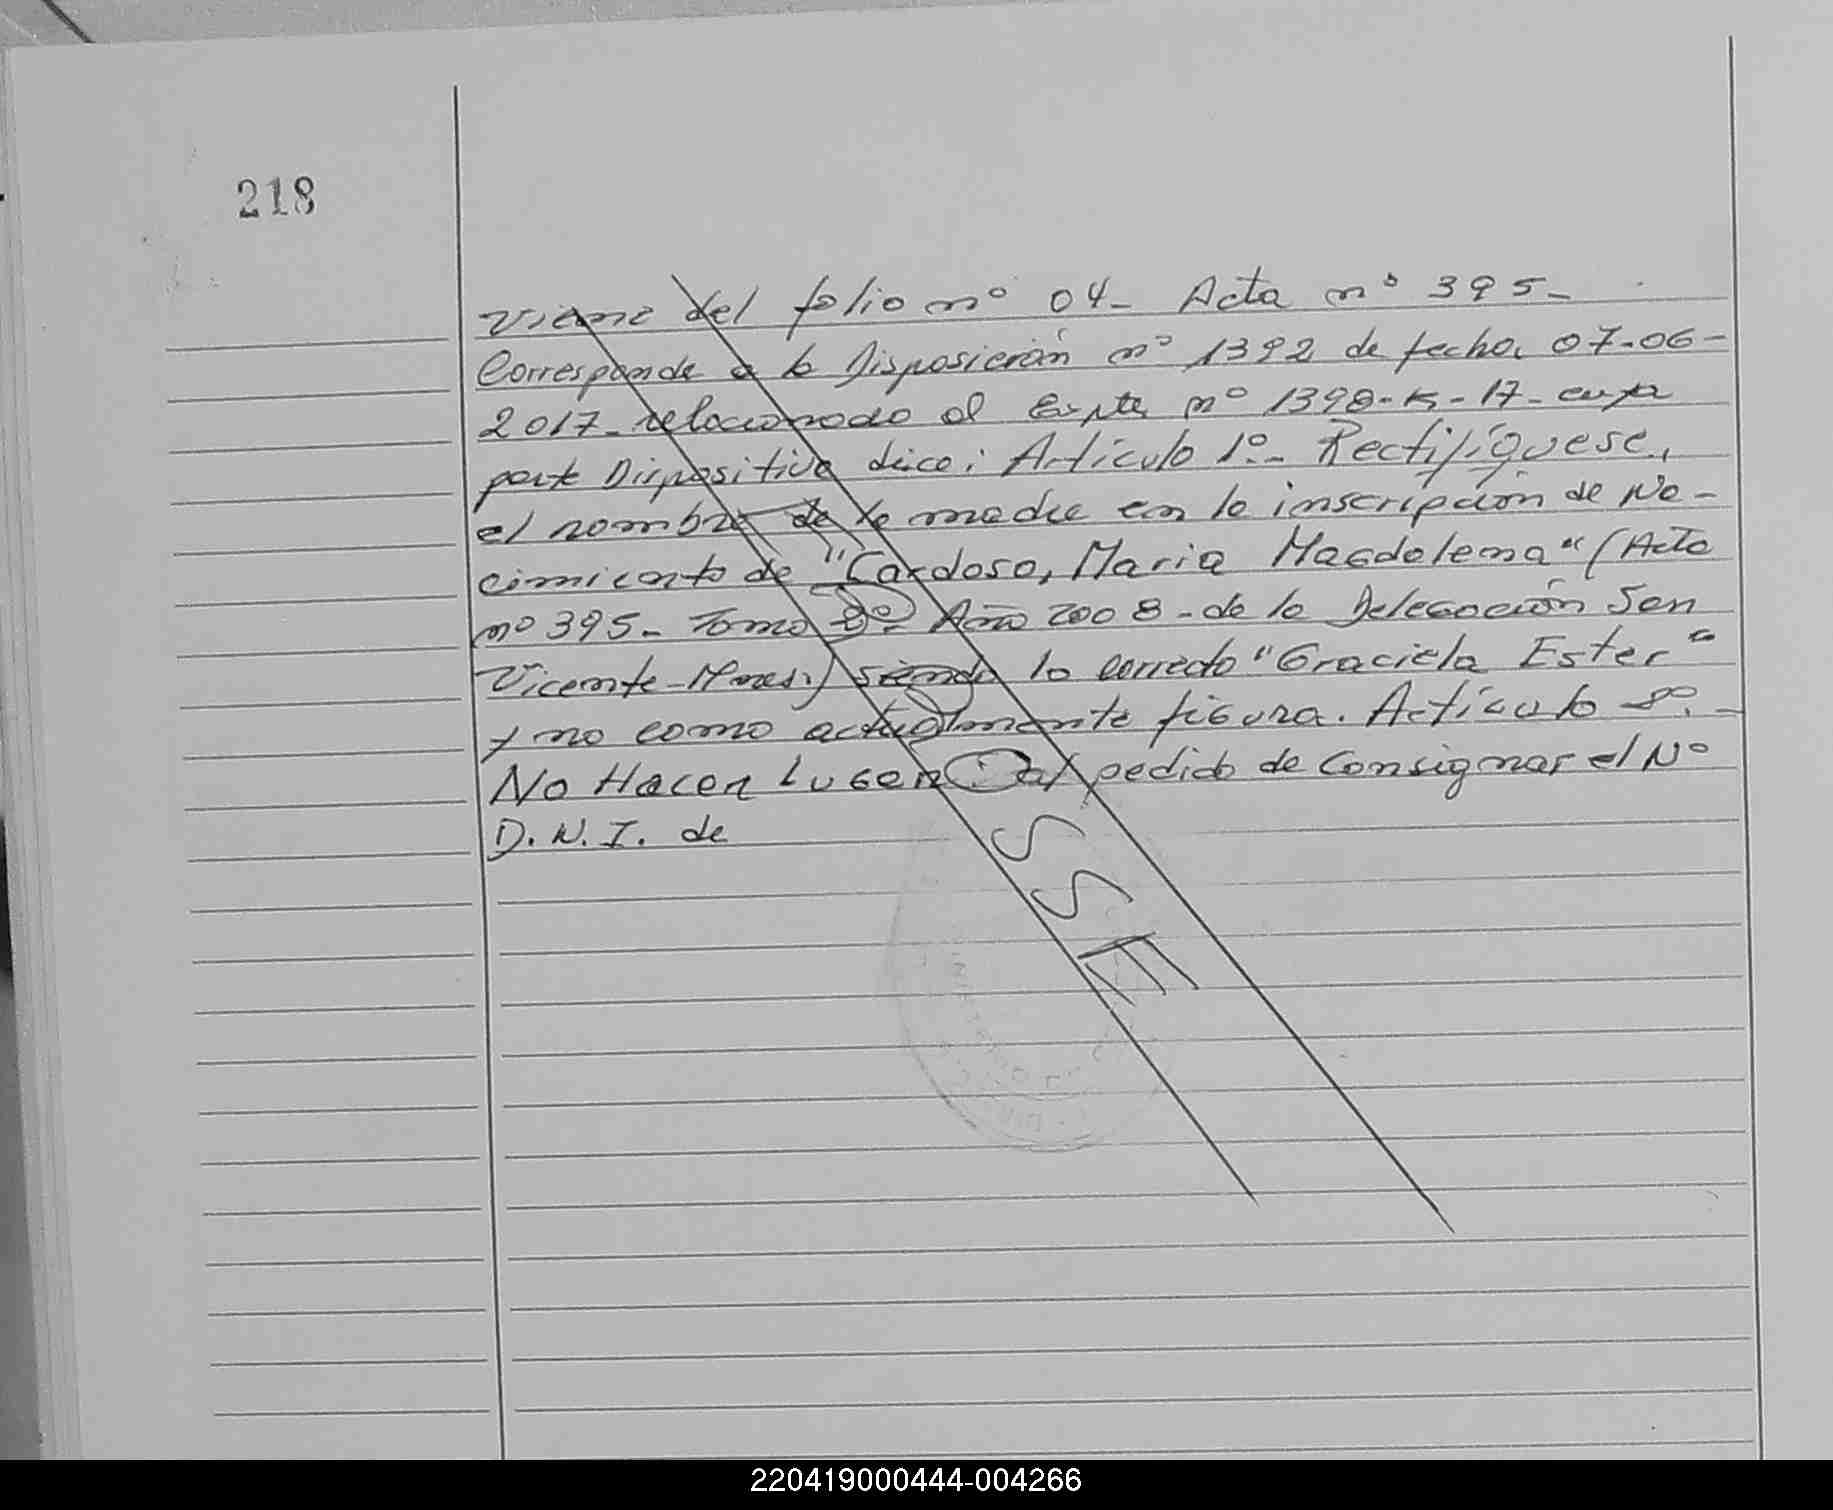 218
Viene del folio nº 04- Acta nº 395-
Corresponde a la Disposición nº 1392 de fecha 07-06-
2017- relacionado al Expte nº 1398-K-17- cuya
parte Dispositiva dice: Artículo 1º- Rectifíquese,
el nombre de la madre en la inscripción de Na-
cimiento de "Cardoso, Maria Magdalena" (Acta
nº 395- Tomo 2º- Año 2008-de la Delegación San
Vicente-Mnes.) siendo lo correcto "Graciela Ester"
y no como actualmente figura. Artículo 2º.-
No Hacer Lugar al pedido de Consignar el Nº
D.N.I. de
SSE
220419000444-004266